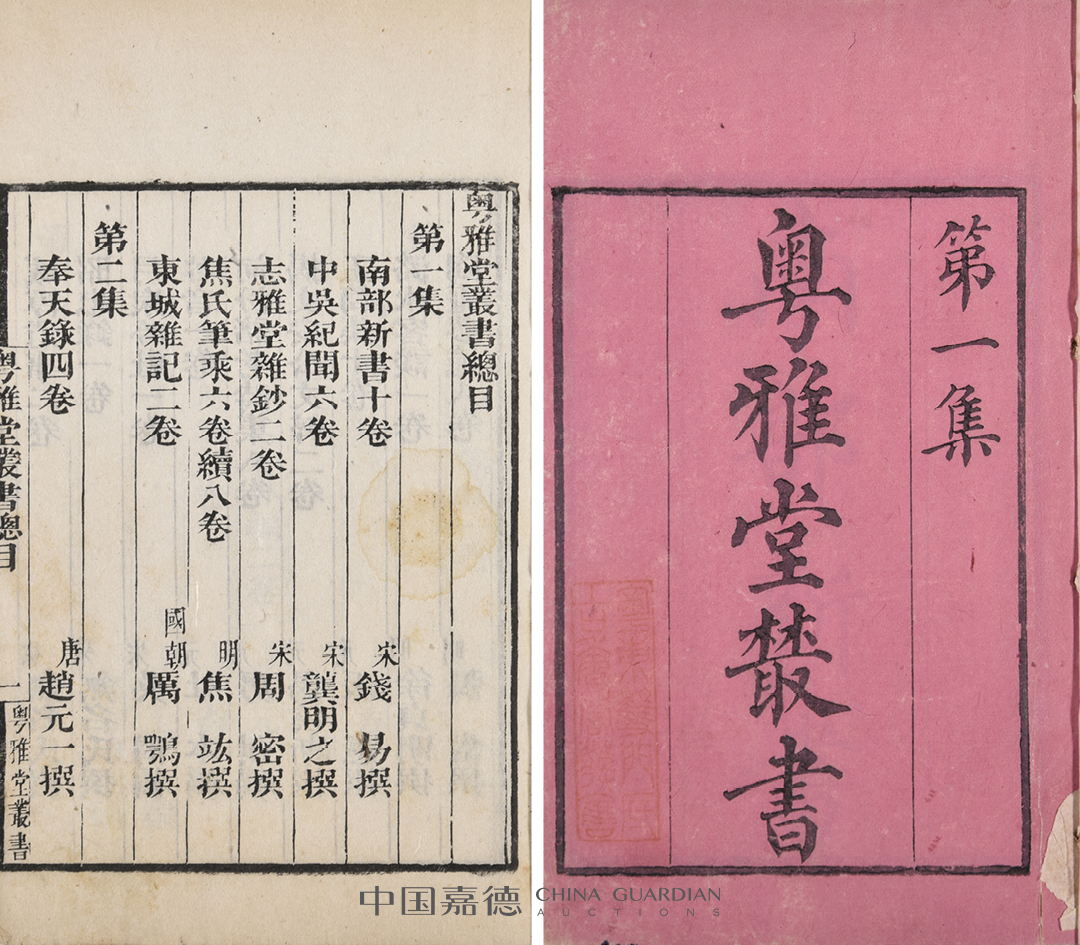 第一集
粤雅堂叢書
粤雅堂叢書總目
第一集
南部新書十卷 宋 錢易撰
中吳紀聞六卷 宋 龔明之撰
志雅堂雜鈔二卷 宋 周密撰
焦氏筆乘六卷續八卷 明 焦竑撰
東城雜記二卷 國朝 厲鶚撰
第二集
奉天錄四卷 唐 趙元一撰
粤雅堂叢書總目
一
粤雅堂叢書
中国嘉德
CHINA GUARDIAN
AUCTIONS